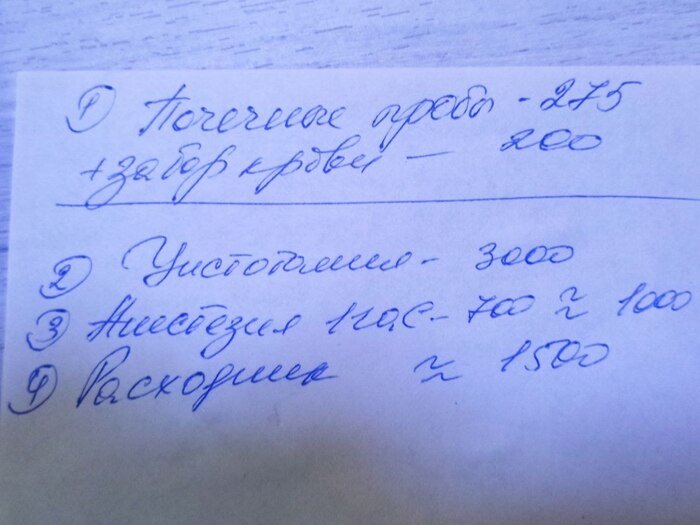 1 Почечные пробы - 275
+ забор крови — 200
2 Цистотомия - 3000
3 Анестезия 1 час - 700 ≈ 1000
4 Расходник ≈ 1500